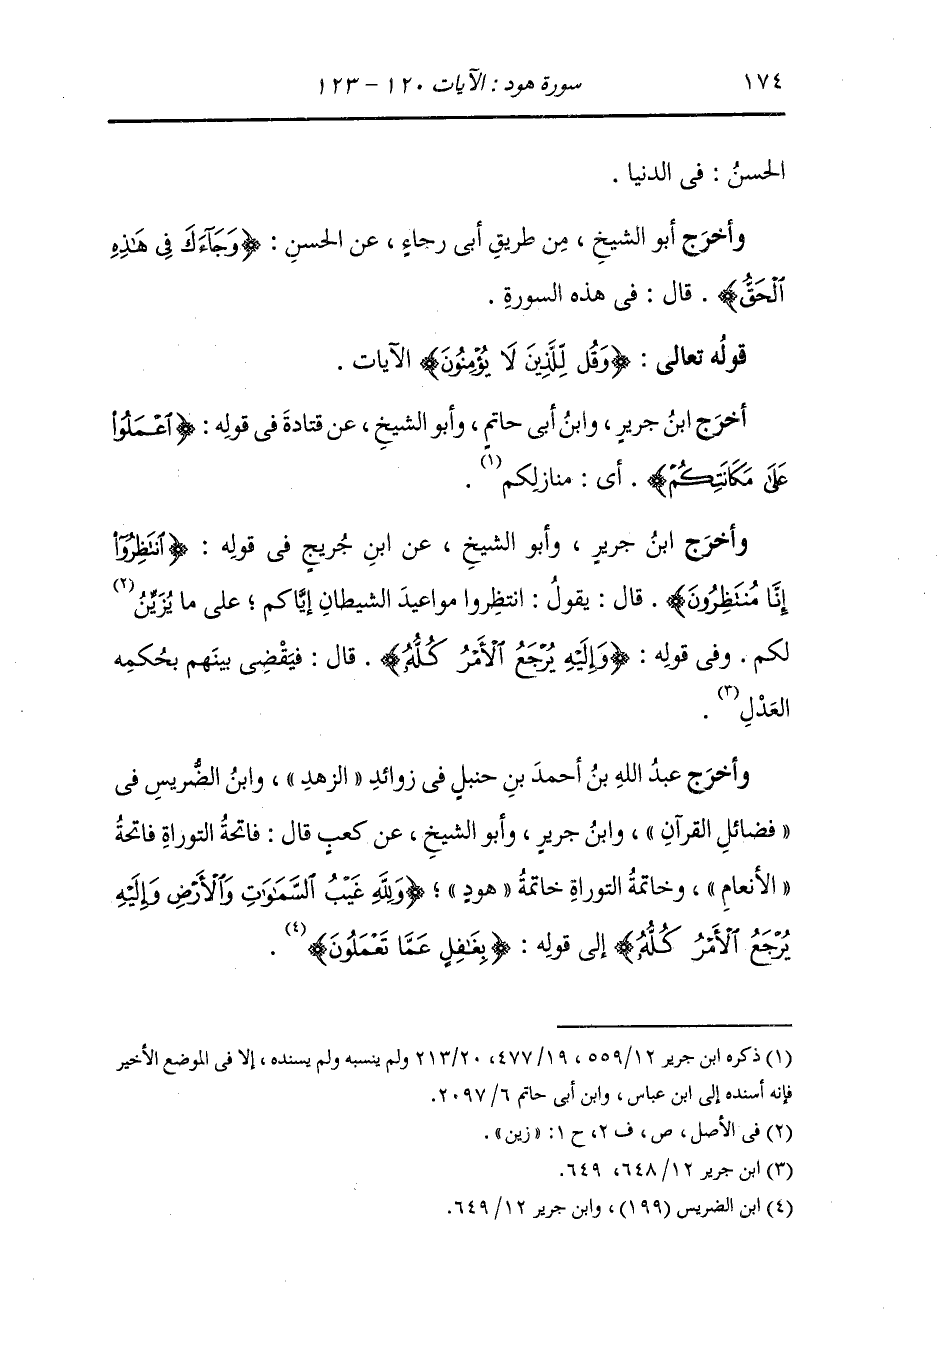 ١٧٤ سورة هود : الآيات ١٢٠ – ١٢٣
الحسنُ : فى الدنيا .
وأخرَج أبو الشيخِ ، مِن طريقِ أبى رجاءٍ ، عن الحسنِ : ﴿وَجَآءَكَ فِى هَٰذِهِ
ٱلْحَقُّ﴾ . قال : فى هذه السورةِ .
قولُه تعالى : ﴿وَقُل لِّلَّذِينَ لَا يُؤْمِنُونَ﴾ الآيات .
أخرَج ابنُ جريرٍ ، وابنُ أبى حاتمٍ ، وأبو الشيخِ ، عن قتادةَ فى قولِه : ﴿ٱعْمَلُوا۟
عَلَىٰ مَكَانَتِكُمْ﴾ . أى : منازلِكم(١) .
وأخرَج ابنُ جريرٍ ، وأبو الشيخِ ، عن ابنِ جُريجٍ فى قولِه : ﴿ٱنتَظِرُوٓا۟
إِنَّا مُنتَظِرُونَ﴾ . قال : يقولُ : انتظِروا مواعيدَ الشيطانِ إيَّاكم ؛ على ما يُزَيِّنُ(٢)
لكم . وفى قولِه : ﴿وَإِلَيْهِ يُرْجَعُ ٱلْأَمْرُ كُلُّهُۥ﴾ . قال : فيَقْضِى بينَهم بحُكمِه
العَدْلِ(٣) .
وأخرَج عبدُ اللهِ بنُ أحمدَ بنِ حنبلٍ فى زوائدِ « الزهدِ » ، وابنُ الضُّريسِ فى
« فضائلِ القرآنِ » ، وابنُ جريرٍ ، وأبو الشيخِ ، عن كعبٍ قال : فاتحةُ التوراةِ فاتحةُ
« الأنعامِ » ، وخاتمةُ التوراةِ خاتمةُ « هودٍ » ؛ ﴿وَلِلَّهِ غَيْبُ ٱلسَّمَٰوَٰتِ وَٱلْأَرْضِ وَإِلَيْهِ
يُرْجَعُ ٱلْأَمْرُ كُلُّهُۥ﴾ إلى قولِه : ﴿بِغَٰفِلٍ عَمَّا تَعْمَلُونَ﴾(٤) .
(١) ذكره ابن جرير ١٢/ ٥٥٩ ، ١٩/ ٤٧٧، ٢٠/ ٢١٣ ولم ينسبه ولم يسنده ، إلا فى الموضع الأخير
فإنه أسنده إلى ابن عباس ، وابن أبى حاتم ٦/ ٢٠٩٧.
(٢) فى الأصل ، ص ، ف ٢، ح ١: «زين» .
(٣) ابن جرير ١٢/ ٦٤٨، ٦٤٩.
(٤) ابن الضريس (١٩٩) ، وابن جرير ١٢/ ٦٤٩.